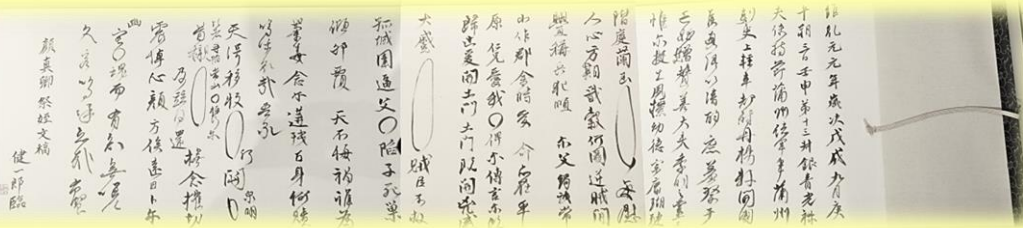 維乾元元年歳次戊戌九月庚
午朔三日壬申第十三叔銀青光禄
夫使持節蒲州諸軍事蒲州
刺史上軽車都尉丹楊縣開國
侯真卿以清酌庶羞祭于
亡姪贈賛善大夫季明之霊
惟尓挺生夙標幼徳宗廟瑚璉
階庭蘭玉 每慰
人心方期戩穀何圖逆賊間
釁稱兵犯順 尓父竭誠常
山作郡余時受命亦在平
原仁兄愛我俾尓傳言尓既
歸止爰開土門土門既開凶威
大蹙 賊臣不救
孤城圍逼父陷子死巣
傾卵覆 天不悔禍誰為
荼毒念尓遘殘百身何贖
嗚呼哀哉吾承
天澤移牧 河關 泉明
首櫬 及茲同還 撫念摧切
震悼心顔方俟遠日卜尓
宅魂而有知無嗟
久客嗚呼哀哉尚饗
顔真卿祭姪文稿
健一郎臨